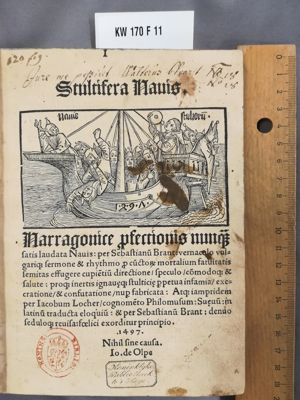 KW 170 F 11
1
Stultifera Nauis.
Nauis
stultorū.
Narragonice ꝓfectionis nunꝗ̃
satis laudata Nauis: per Sebastianū Brant: vernaculo vul-
gariꝗ sermone & rhythmo
mortalium fatuitatis
semitas effugere cupiētiū directione: speculo cōmodoꝗ: &
salute: proꝗ inertis ignauęꝗ stulticię ꝑpetua infamia: exe-
cratione: & confutatione: nup fabricata: Atꝗ iampridem
per Iacobum Locher: cognomēto Philomusum: Sueuū: in
latinū traducta eloquiū: & per Sebastianū Brant: denuo
seduloꝗ reuisa: fœlici exorditur principio.
1497.
Nihil sine causa.
Io. de Olpe